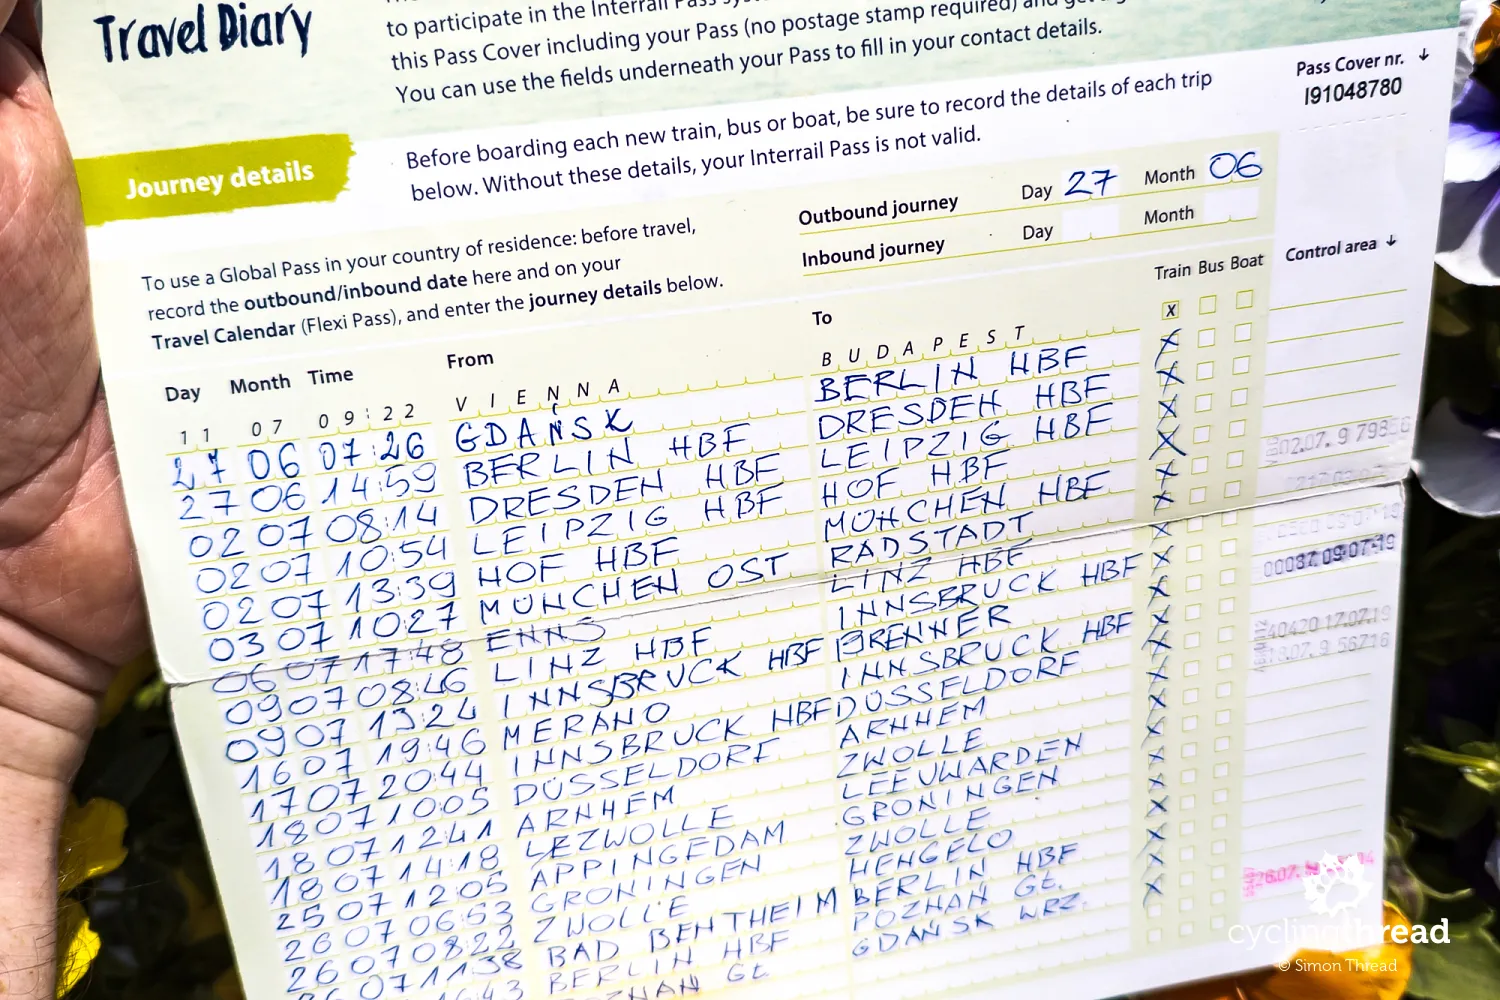 Travel Diary
to participate in the Interrail Pass
this Pass Cover including your Pass (no postage stamp required) and
You can use the fields underneath your Pass to fill in your contact details.
Journey details
Before boarding each new train, bus or boat, be sure to record the details of each trip
below. Without these details, your Interrail Pass is not valid.
Pass Cover nr. ↓
I91048780
Outbound journey Day 27 Month 06
Inbound journey Day Month
To use a Global Pass in your country of residence: before travel,
record the outbound/inbound date here and on your
Travel Calendar (Flexi Pass), and enter the journey details below.
Day Month Time From To Train Bus Boat Control area ↓
11 07 09:22 VIENNA BUDAPEST x
27 06 07:26 GDAŃSK BERLIN HBF x
27 06 14:59 BERLIN HBF DRESDEN HBF x
02 07 08:14 DRESDEN HBF LEIPZIG HBF x
02 07 10:54 LEIPZIG HBF HOF HBF x
02 07 13:39 HOF HBF MÜNCHEN HBF x
03 07 10:27 MÜNCHEN OST RADSTADT x
06 07 17:48 ENNS LINZ HBF x
09 07 08:46 LINZ HBF INNSBRUCK HBF x
09 07 13:24 INNSBRUCK HBF BRENNER x
16 07 19:46 MERANO INNSBRUCK HBF x
17 07 20:44 INNSBRUCK HBF DÜSSELDORF x
18 07 10:05 DÜSSELDORF ARNHEM x
18 07 12:41 ARNHEM ZWOLLE x
18 07 14:18 ZWOLLE LEEUWARDEN x
25 07 12:05 APPINGEDAM GRONINGEN x
26 07 06:53 GRONINGEN ZWOLLE x
26 07 08:22 ZWOLLE HENGELO x
26 07 11:38 BAD BENTHEIM BERLIN HBF x
BERLIN HBF POZNAŃ Gł. x
POZNAŃ Gł. GDAŃSK WRZ.
02.07. 9
00037 09-07-19
40420 17.07.19
18.07. 9 56716
26.07.
cyclingthread
© Simon Thread